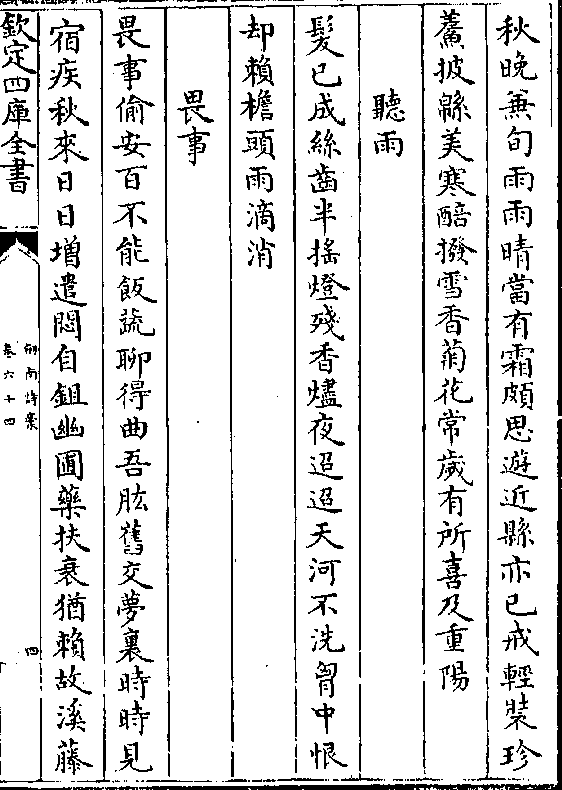 秋晚兼旬雨雨晴當有霜頗思遊近縣亦已戒輕裝珍
薧披綿美寒醅撥雪香菊花常歲有所喜及重陽
聽雨
髪已成絲齒半摇燈殘香燼夜迢迢天河不洗胷中恨
却賴檐頭雨滴消
畏事
畏事偷安百不能飯蔬聊得曲吾肱舊交夢裏時時見
宿疾秋來日日增遣悶自鉏幽圃藥扶衰猶賴故溪藤
欽定四庫全書
劍南詩稾
卷六十四
四